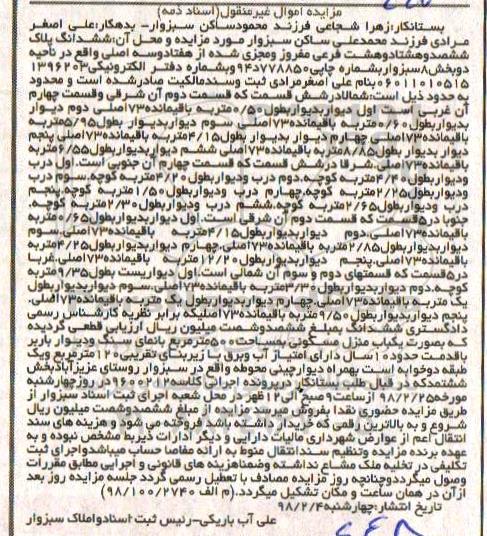 مزایده اموال غیرمنقول(اسناد ذمه)
بستانکار:زهرا شجاعی فرزند محمودساکن سبزوار- بدهکار:علی اصغر
مرادی فرزند محمدعلی ساکن سبزوار مورد مزایده و محل آن:ششدانگ پلاک
ششصدوهشتادوهفت فرعی مفروز ومجزی شده از هفتادوسه اصلی واقع در ناحیه
دوبخش۸سبزواربشماره چاپی۷۷۸۸۵۰د۹۶وبشماره دفتر الکترونیکی۱۳۹۶۲۰۳
۰۶۰۱۱۰۱۰۵۱۵بنام علی اصغرمرادی ثبت وسندمالکیت صادرشده است و محدود
به حدود ذیل است:شمالادرشش قسمت که قسمت دوم آن شرقی وقسمت چهارم
آن غربی است. اول دیواربدیواربطول۰/۵۰متربه باقیمانده۷۳اصلی دوم دیوار
بدیواربطول۰/۶۰متربه باقیمانده۷۳اصلی سوم دیواربدیوار بطول۵/۹۵متربه
باقیمانده۷۳اصلی چهارم دیوار بدیوار بطول۴/۱۵متربه باقیمانده۷۳اصلی پنجم
دیوار بدیوار بطول۸/۸۵متربه باقیمانده۷۳اصلی ششم دیواربدیواربطول۶/۵۵متربه
باقیمانده۷۳اصلی.شرقا درشش قسمت که قسمت چهارم آن جنوبی است.اول درب
ودیواربطول۴/۴۰متربه کوچه.دوم درب ودیواربطول۴/۲۰متربه کوچه.سوم درب
ودیواربطول۲/۲۵متربه کوچه.چهارم درب ودیواربطول۱/۵۰متربه کوچه.پنجم
درب ودیواربطول۲/۶۵متربه کوچه.ششم درب ودیواربطول۲/۳۰متربه کوچه.
جنوبا در۵قسمت که قسمت دوم آن شرقی است.اول دیواربدیواربطول۰/۶۵متربه
باقیمانده۷۳اصلی.دوم دیواربدیواربطول۴/۱۵متربه باقیمانده۷۳اصلی.سوم
دیواربدیواربطول۲/۸۵متربه باقیمانده۷۳اصلی.چهارم دیواربدیواربطول۴/۲۵متربه
باقیمانده۷۳اصلی.پنجم دیواربدیواربطول۱۲/۲۰متربه باقیمانده۷۳اصلی.غربا
در۵قسمت که قسمتهای دوم و سوم آن شمالی است.اول دیواریست بطول۹/۳۵متربه
کوچه.دوم دیواربدیواربطول۳/۳۰متربه باقیمانده۷۳اصلی.سوم دیواربدیواربطول
یک متربه باقیمانده۷۳اصلی.چهارم دیواربدیواربطول یک متربه باقیمانده۷۳اصلی.
پنجم دیواربدیواربطول۹/۵۰متربه باقیمانده۷۳اصلیکه برابر نظریه کارشناس رسمی
دادگستری ششدانگ بمبلغ ششصدوشصت میلیون ریال ارزیابی قطعی گردیده
که بصورت یکباب منزل مسکونی بمساحت۵۰۰مترمربع بانمای سنگ ودیوار باربر
باقدمت حدود۱۰سال دارای امتیاز آب وبرق با زیربنای تقریبی۱۲۰مترمربع ویک
طبقه دوخوابه است بهمراه دیوارچینی محوطه واقع در سبزوار روستای عزیزآبادبخش
ششتمدکه در قبال طلب بستانکار درپرونده اجرائی کلاسه۹۶۰۰۲۱۲در روزچهارشنبه
مورخه۹۸/۲/۲۵ ازساعت۹صبح الی۱۲ظهر در محل شعبه اجرای ثبت اسناد سبزوار از
طریق مزایده حضوری نقدا بفروش میرسد مزایده از مبلغ ششصدوشصت میلیون ریال
شروع و به بالاترین رقمی که خریدار داشته باشد فروخته می شود و هزینه های سند
انتقال اعم از عوارض شهرداری مالیات دارایی و دیگر ادارات ذیربط مشخص نبوده و به
عهده برنده مزایده وتنظیم سندانتقال منوط به ارائه مفاصا حساب میباشدواجرای ثبت
تکلیفی در تخلیه ملک مشاع نداشته وضمناهزینه های قانونی و اجرایی مطابق مقررات
وصول میگرددوچنانچه روز مزایده مصادف با تعطیل رسمی گردد جلسه مزایده روز بعد
ازآن در همان ساعت و مکان تشکیل میگردد.(م الف ۹۸/۱۰۰/۲۷۴۰)
تاریخ انتشار:چهارشنبه۹۸/۲/۴
علی آب باریکی-رئیس ثبت اسنادواملاک سبزوار